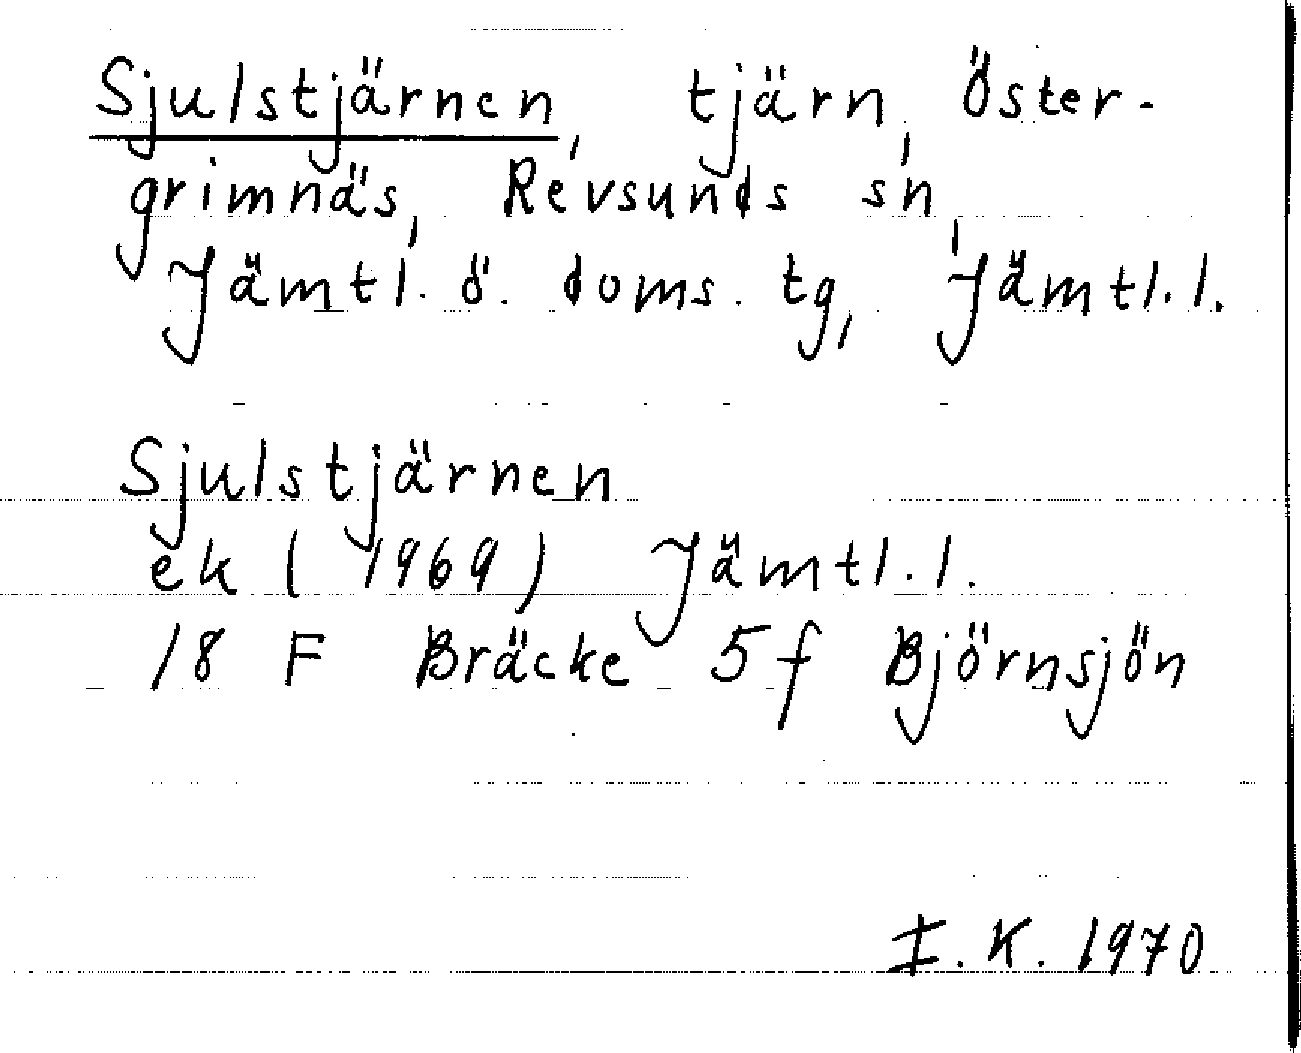 Sjulstjärnen, tjärn, Öster-
grimnäs, Revsunds sn,
Jämtl. ö. doms. tg, Jämtl.l.
Sjulstjärnen
ek (1969) Jämtl.l.
18 F Bräcke 5f Björnsjön
I.K. 1970